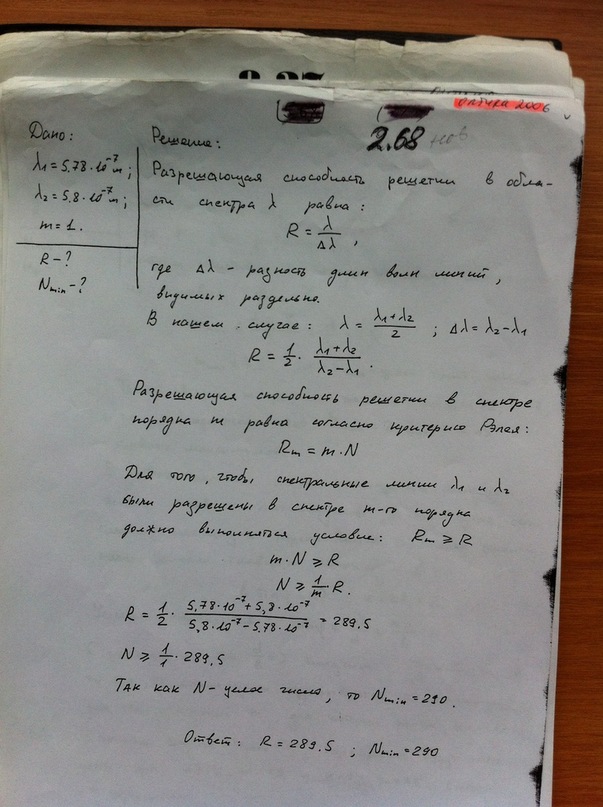 оптика 2006
2.68 нов
Дано:
λ₁ = 5,78·10⁻⁷ м;
λ₂ = 5,8·10⁻⁷ м;
m = 1.
R - ?
Nmin - ?
Решение:
Разрешающая способность решетки в обла-
сти спектра λ равна:
R = λ/Δλ ,
где Δλ - разность длин волн линий,
видимых раздельно.
В нашем случае: λ = (λ₁+λ₂)/2 ; Δλ = λ₂-λ₁
R = 1/2 · (λ₁+λ₂)/(λ₂-λ₁) .
Разрешающая способность решетки в спектре
порядка m равна согласно критерию Рэлея:
Rm = m·N
Для того, чтобы спектральные линии λ₁ и λ₂
были разрешены в спектре m-го порядка
должно выполняться условие: Rm ≥ R
m·N ≥ R
N ≥ 1/m · R.
R = 1/2 · (5,78·10⁻⁷+5,8·10⁻⁷)/(5,8·10⁻⁷-5,78·10⁻⁷) = 289.5
N ≥ 1/1 · 289.5
Так как N - целое число, то Nmin = 290.
Ответ: R = 289.5 ; Nmin = 290